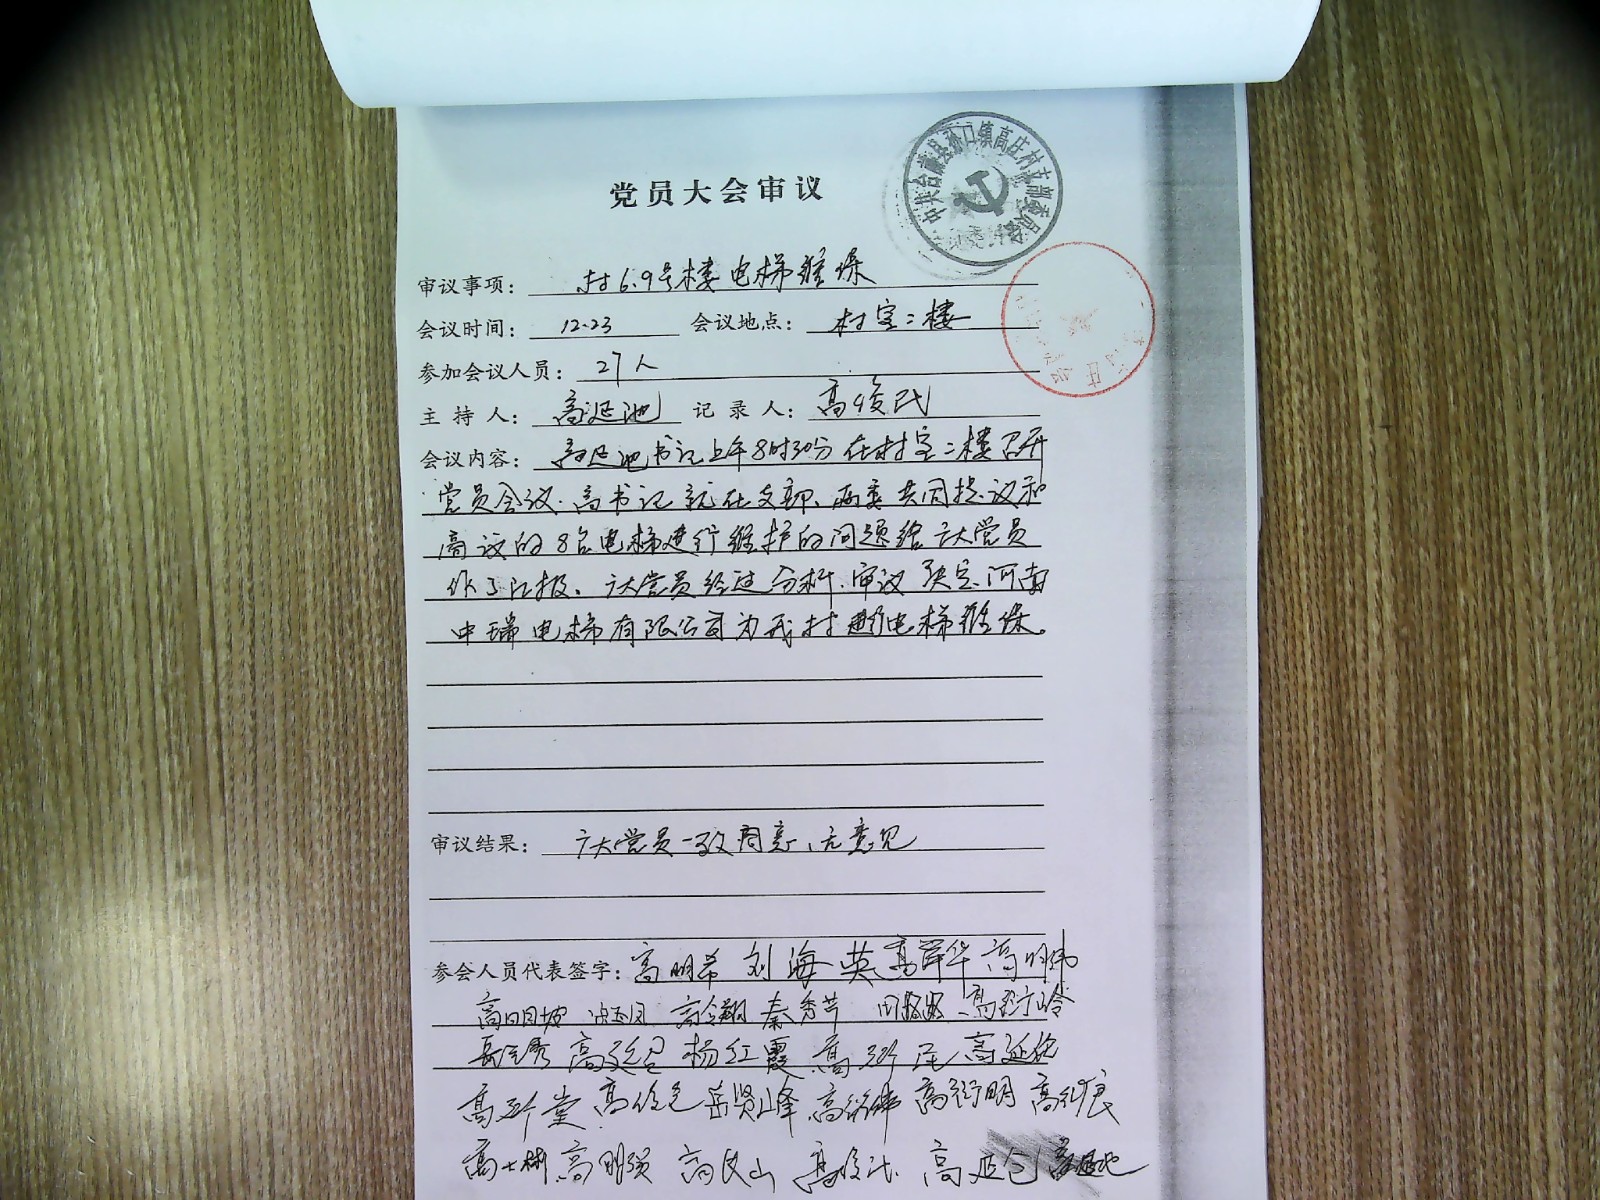 中共台前县孙口镇高庄村支部委员会
党员大会审议
审议事项： 村6.9号楼电梯维保
会议时间： 12.23 会议地点： 村室二楼
参加会议人员： 27人
主持人： 高延池 记录人： 高俊民
会议内容： 高延池书记上午8时30分在村室二楼召开
党员会议、高书记就在支部、两委共同提议和
商议的8台电梯进行维护的问题给广大党员
作了汇报。广大党员经过分析、审议决定、河南
中瑞电梯有限公司为我村进行电梯维保。
审议结果： 广大党员一致同意、无意见
参会人员代表签字： 高明希 刘海英 高 华 高明伟
高 翔 秦秀芹
杨红霞 高延
高 堂 岳贤峰 高 高衍明
高士彬 高明 高 山 高延池